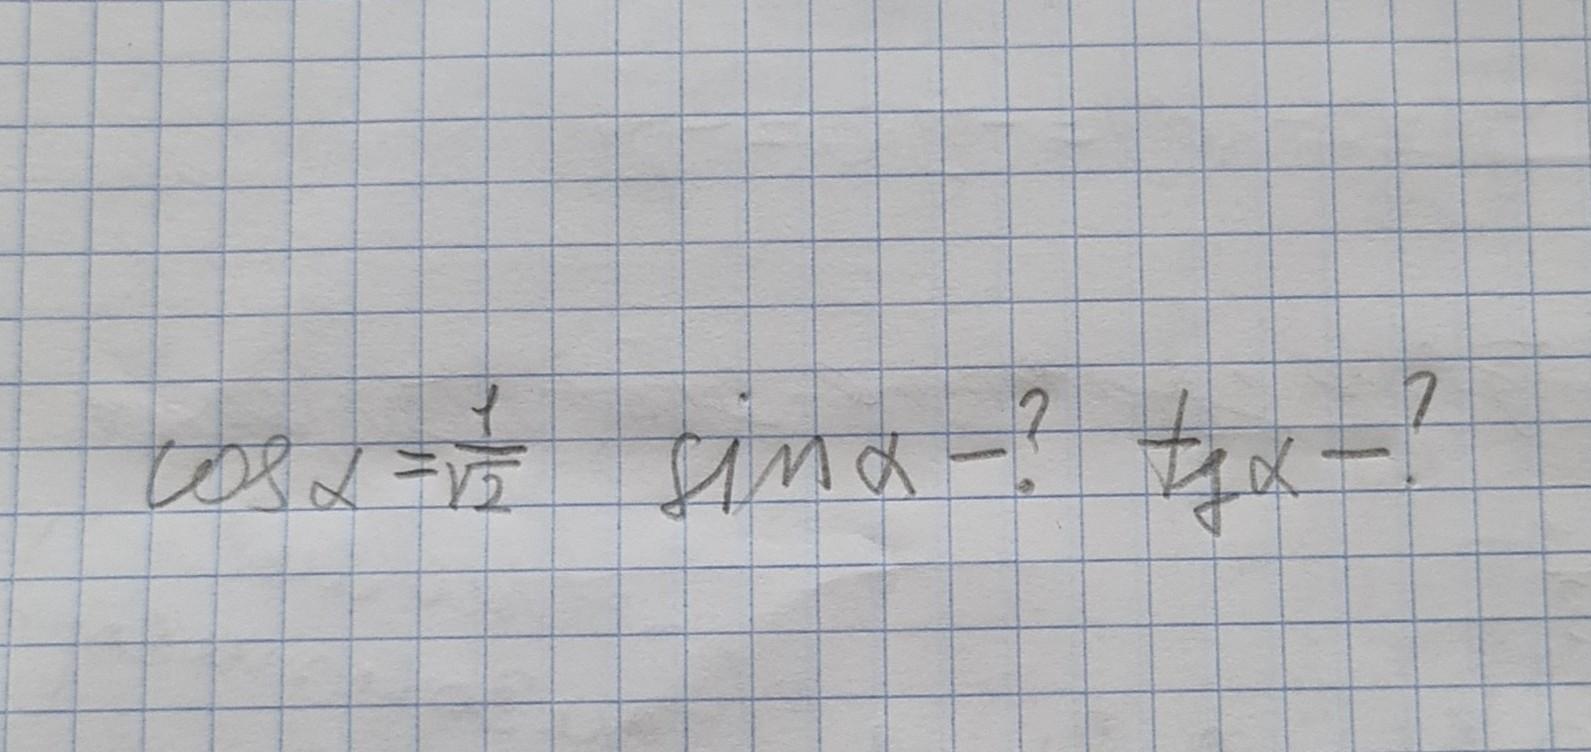 cos α = 1/√2 sin α - ? tg α - ?